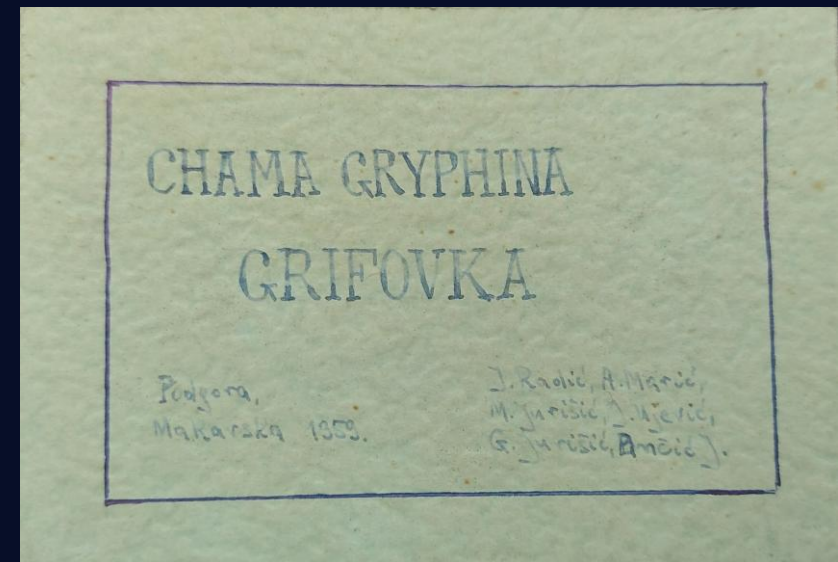 CHAMA GRYPHINA
GRIFOVKA
Podgora,
Makarska 1959.
J. Radić, A. Marić,
M. Jurišić, J. Ujević,
G. Jurišić, Ančić J.